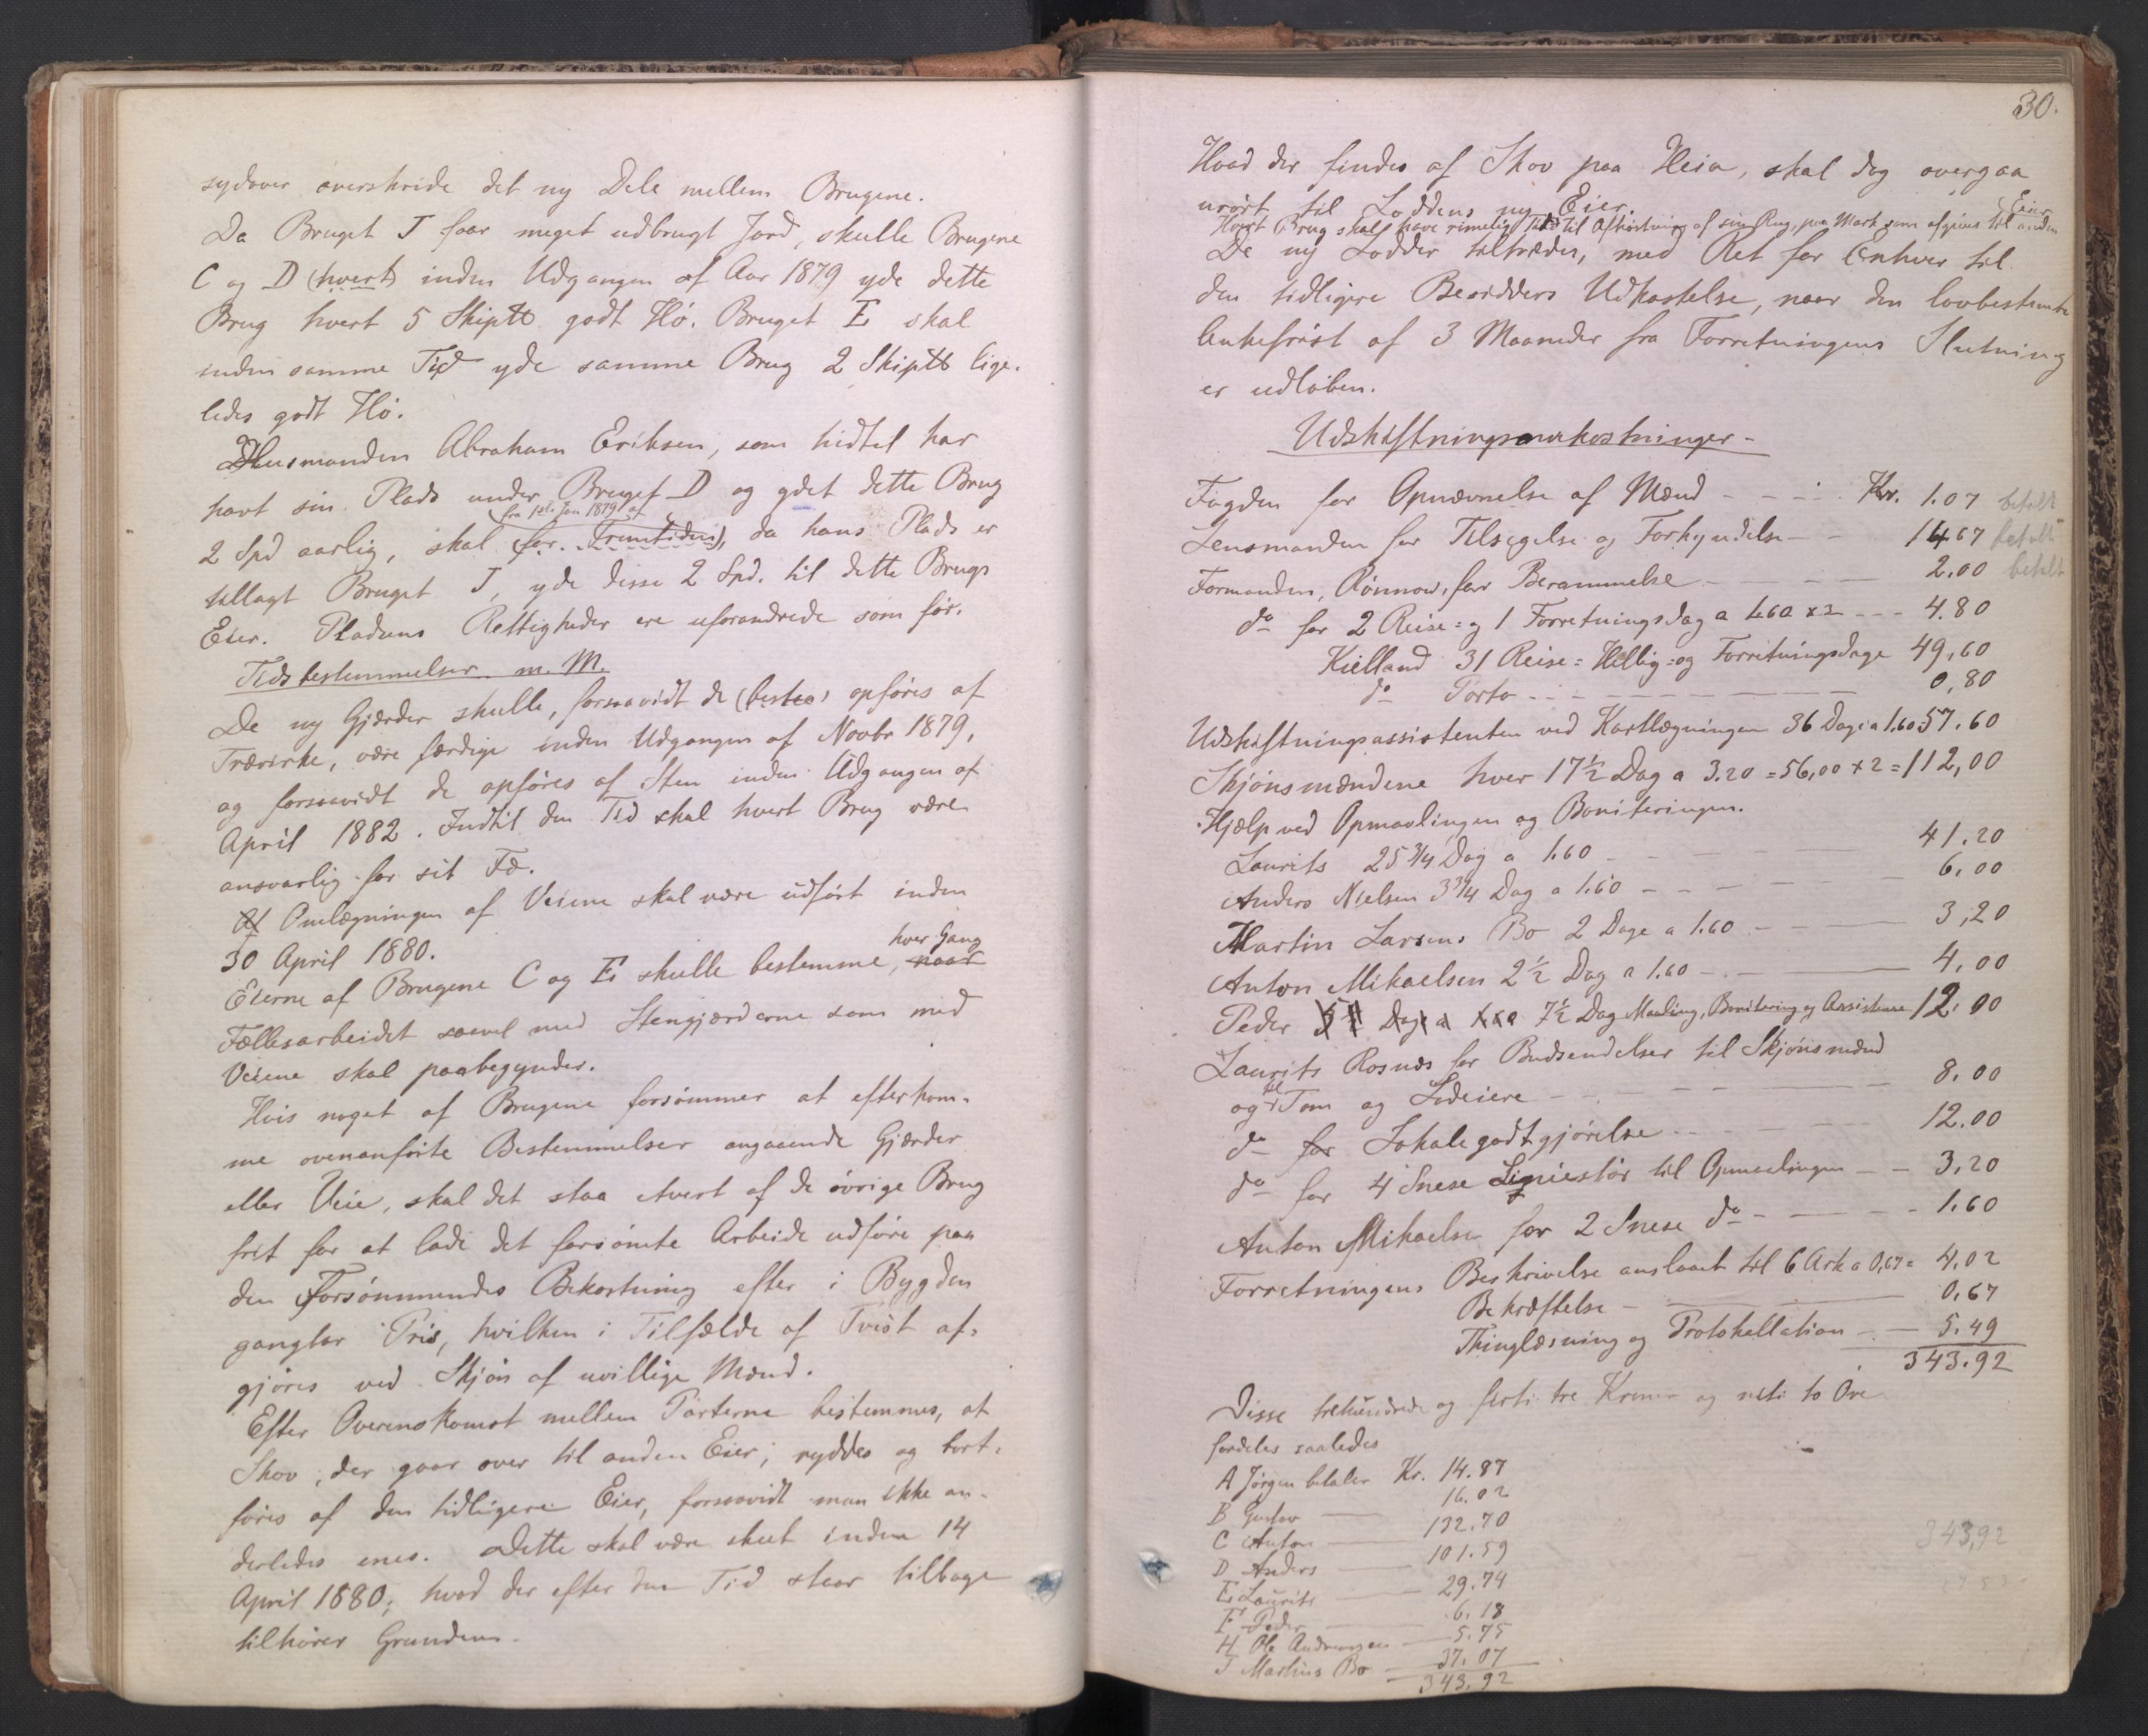 sydover overskride det ny Dele mellem Brugene.
Da Bruget J faar meget udbrugt Jord, skulle Brugene
C og D (hvert) inden Udgangen af Aar 1879 yde dette
Brug hvert 5 Skip℔ godt Hø. Bruget E skal
inden samme Tid yde samme Brug 2 Skip℔ lige-
ledes godt Hø.
Husmanden Abraham Eriksen, som hidtil har
havt sin Plads under Bruget D og ydet dette Brug
fra 1ste Jan 1879 af
2 Spd aarlig, skal (for Fremtiden), da hans Plads er
tillagt Bruget J, yde disse 2 Spd. til dette Brugs
Eier. Pladsens Rettigheder ere uforandrede som før.
Tidsbestemmelser m. M.
De ny Gjærder skulle, forsaavidt de (bestaa) opføres af
Trævirke, være færdige inden Udgangen af Novbr 1879,
og forsaavidt de opføres af Sten inden Udgangen af
April 1882. Indtil den Tid skal hvert Brug være
ansvarlig for sit Fæ.
Omlægningen af Veiene skal være udført inden
30 April 1880.
hver Gang
Eierne af Brugene C og E skulle bestemme, naar
Fællesarbeidet saavel med Stengjærderne som med
Veiene skal paabegyndes.
Hvis noget af Brugene forsømmer at efterkom-
me ovenanførte Bestemmelser angaaende Gjærder
eller Veie, skal det staa hvert af de øvrige Brug
frit for at lade det forsømte Arbeide udføre paa
den Forsømmendes Bekostning efter i Bygden
gangbar Pris, hvilken i Tilfælde af Tvist af-
gjøres ved Skjøn af uvillige Mænd.
Efter Overenskomst mellem Parterne bestemmes, at
Skov, der gaar over til anden Eier, ryddes og bort-
føres af den tidligere Eier, forsaavidt man ikke an-
derledes enes. Dette skal være skeet inden 14
April 1880; hvad der efter den Tid staar tilbage
tilhører Grunden.
30.
Hvad der findes af Skov paa Heia, skal dog overgaa
urørt til Loddens ny Eier.
Hvert Brug skal have rimelig Tid til Afhøstning af sin Rug, paa Mark som afgives til anden Eier
De ny Lodder tiltrædes, med Ret for Enhver til
den tidligere Besidders Udkastelse, naar den lovbestemte
Ankefrist af 3 Maaneder fra Forretningens Slutning
er udløben.
Udskiftningsomkostninger
Fogden for Opnævnelse af Mænd - - - Kr. 1.07 betalt
Lensmanden for Tilsigelse og Forkyndelse - - 14.67 betalt
Formanden, Rønnow, for Berammelse - - - 2.00 betalt
do for 2 Reise- og 1 Forretningsdag a 1.60 x 3 - - - 4.80
Kielland 31 Reise- Hellig- og Forretningsdage 49,60
do Porto - - - 0,80
Udskiftningsassistenten ved Kartlægningen 36 Dage a 1.60 57.60
Skjønsmændene hver 17½ Dag a 3.20 = 56,00 x 2 = 112,00
Hjælp ved Opmaalingen og Boniteringen.
Laurits 25¾ Dag a 1.60 - - - 41.20
Anders Nielsen 3¾ Dag a 1.60 - - - 6,00
Martin Larsens Bo 2 Dage a 1.60 - - - 3,20
Anton Mikaelsen 2½ Dag a 1.60 - - - 4,00
Peder 7½ Dag Maaling, Bonitering og Assistense 12,00
Laurits Rosnæs for Budsendelser til Skjønsmænd
og Tom og Lodeiere - - - 8.00
do for Lokalegodtgjørelse - - - 12.00
do for 4 Snese Liniestør til Opmaalingen - - 3,20
Anton Mikaelsen for 2 Snese do - - - 1.60
Forretningens Beskrivelse anslaaet til 6 Ark a 0,67 = 4,02
Bekræftelse - - - 0.67
Thinglæsning og Protokollation - - 5.49
343.92
Disse trehundrede og firti tre Kroner og niti to Øre
fordeles saaledes
A Jørgen betaler Kr. 14.87
B Gustav - 16.02
C Anton - 132.70
D Anders - 101.59
E Laurits - 29.74
F Peder - 6.18
H Ole Andreassen - 5.75
J Martins Bo - 37.07
343.92
343,92